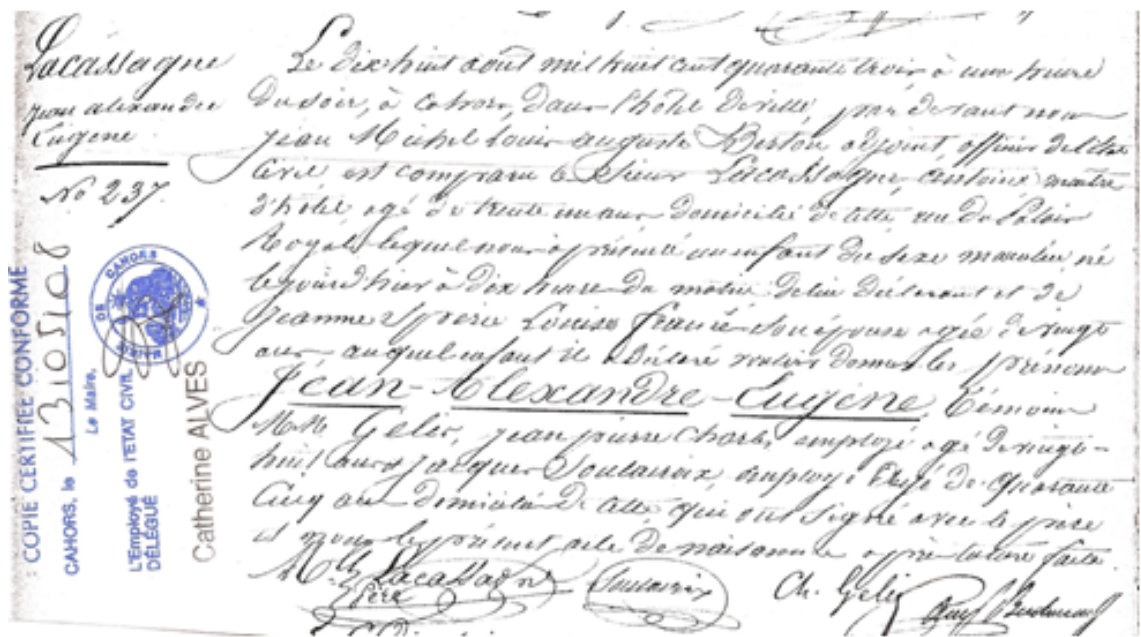 Lacassagne
Jean alexandre
Eugène
No 237.
COPIE CERTIFIEE CONFORME
CAHORS, le 13/05/08
Le Maire,
L'Employé de l'ETAT CIVIL
DÉLÉGUÉ
Catherine ALVES
MAIRIE DE CAHORS
Le dix huit aout mil huit cent quarante trois à une heure
du soir, à cahors, dans l'hotel de ville, par devant nous
Jean Michel Louis auguste Berton adjoint, officier de l'état
Civil est comparu le Sieur Lacassagne, antoine maitre
d'hotel agé de trente un ans domicilié de cette rue du Palais
Royal lequel nous a présenté un enfant du sexe masculin né
le jour d'hier à dix heures du matin de lui déclarant et de
Jeanne Louise son épouse agée de vingt
ans auquel enfant il a déclaré vouloir donner les prénoms
Jean-Alexandre-Eugène. Témoins
M.M. Gelis, jean pierre Charles employé agé de vingt-
huit ans & Jacques Soulacroix, employé agé de quarante
Cinq ans domiciliés de cette qui ont signé avec le père
et nous le présent acte de naissance après lecture faite.
Lacassagne
père
Soulacroix
Ch. Gelis